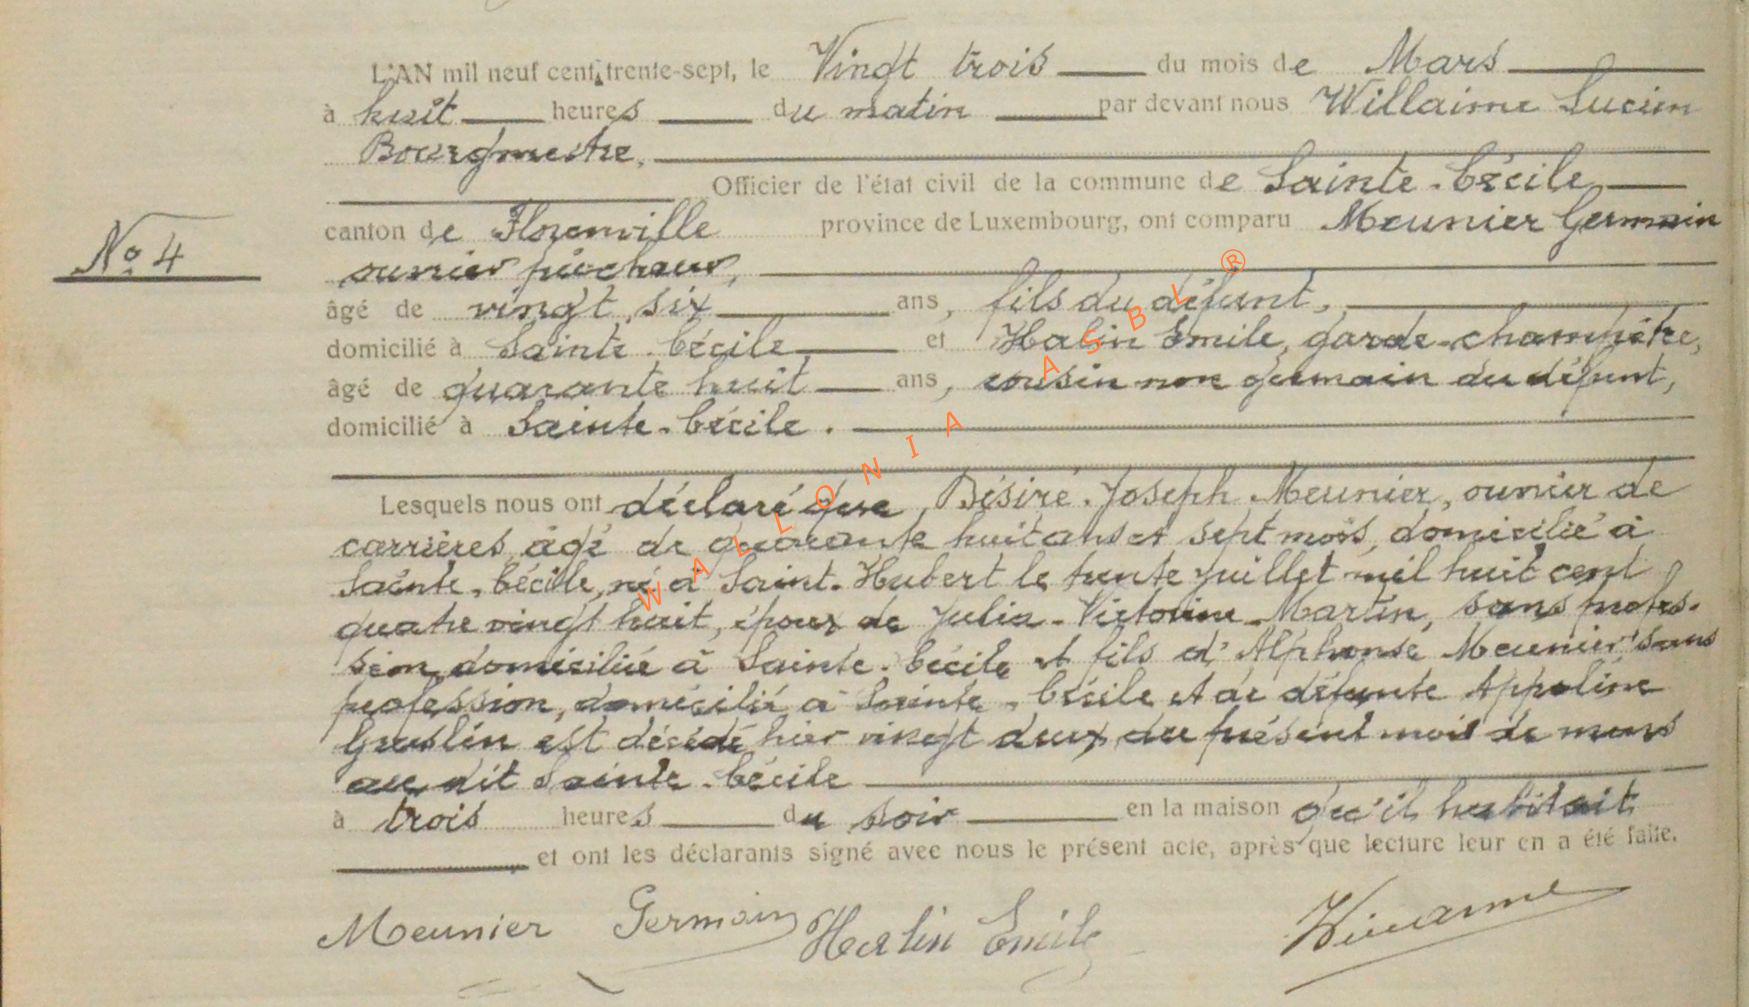 L'AN mil neuf cent trente-sept, le Vingt trois du mois de Mars
à huit heures du matin par devant nous Willaime Lucien
Bourgmestre,
Officier de l'état civil de la commune de Sainte-Cécile
N° 4
canton de Florenville province de Luxembourg, ont comparu Meunier Germain
ouvrier piocheur,
âgé de vingt six ans, fils du défunt,
domicilié à Sainte-Cécile et Halin Emile, garde-champêtre,
âgé de quarante huit ans, cousin non germain du défunt,
domicilié à Sainte-Cécile.
Lesquels nous ont déclaré que Désiré-Joseph Meunier, ouvrier de
carrières, âgé de quarante huit ans et sept mois, domicilié à
Sainte-Cécile, né à Saint-Hubert le trente juillet mil huit cent
quatre vingt huit, époux de Julia-Victorine Martin, sans profes-
sion, domiciliée à Sainte-Cécile et fils d'Alphonse Meunier sans
profession, domicilié à Sainte-Cécile et de défunte Appoline
est décédé hier vingt deux du présent mois de mars
au dit Sainte-Cécile
à trois heures du soir en la maison qu'il habitait
et ont les déclarants signé avec nous le présent acte, après que lecture leur en a été faite.
Meunier Germain Halin Emile
WALLONIA ASBL ®